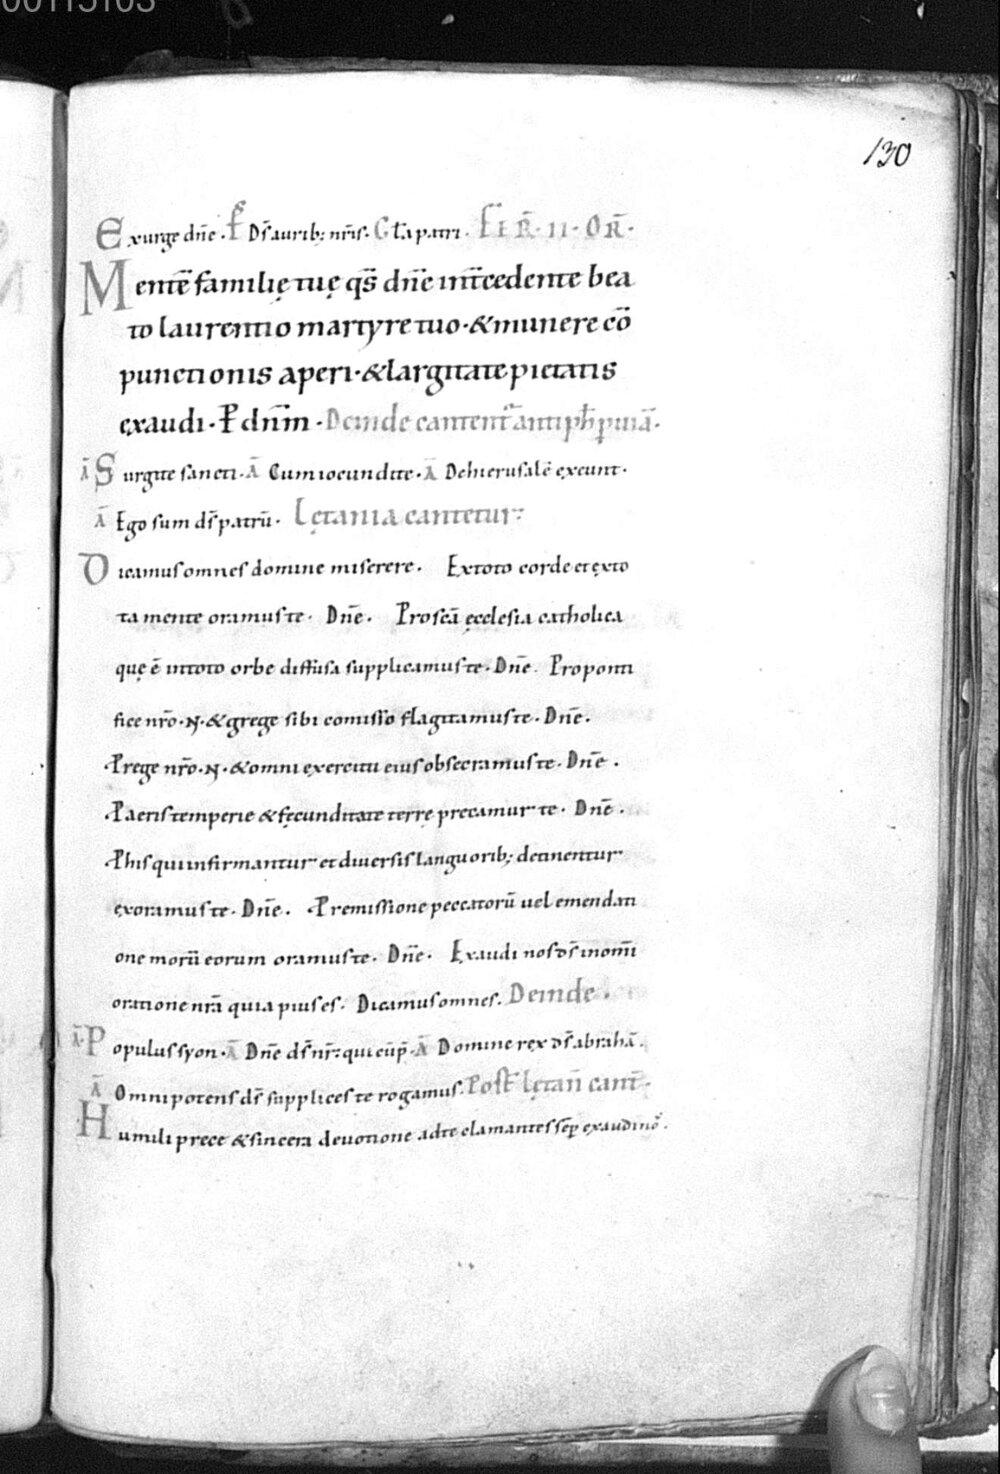 00115103
130
Exurge dn̄e. P̄s Ds̄ aurib; nr̄is. Gl̄a patri. FER̄. II. OR̄.
Mentē familię tuę qs̄ dn̄e int̄cedente bea
to laurentio martyre tuo. & munere cō
punctionis aperi. & largitate pietatis
exaudi. P̄ dn̄m. Deinde cantent̄ antiph̄
Ā Surgite sancti. Ā Cum iocundite. Ā De hierusalē exeunt.
Ā Ego sum ds̄ patrū. Lętania cantetur:
Dicamus omnes domine miserere. Ex toto corde et ex to
ta mente oramus te. Dn̄e. Pro scā ęcclesia catholica
quę ē in toto orbe diffusa supplicamus te. Dn̄e. Pro ponti
fice nr̄o. N. & grege sibi comisso flagitamus te. Dn̄e.
P rege nr̄o. N. & omni exercitu eius obsecramus te. Dn̄e.
P aeris temperie & fęcunditate terrę precamur te. Dn̄e.
P his qui infirmantur et diversis languorib; detinentur
exoramus te. Dn̄e. P remissione peccatorū uel emendati
one morū eorum oramus te. Dn̄e. Exaudi nos ds̄ in om̄i
oratione nr̄a quia pius es. Dicamus omnes. Deinde.
Ā. Populus syon. Ā Dn̄e ds̄ nr̄: qui cū p̄. Ā Domine rex ds̄ abrahā.
Ā Omnipotens ds̄ supplices te rogamus. Post lętan̄ cant̄.
Humili prece & sincera deuotione ad te clamantes sēp exaudi nos.